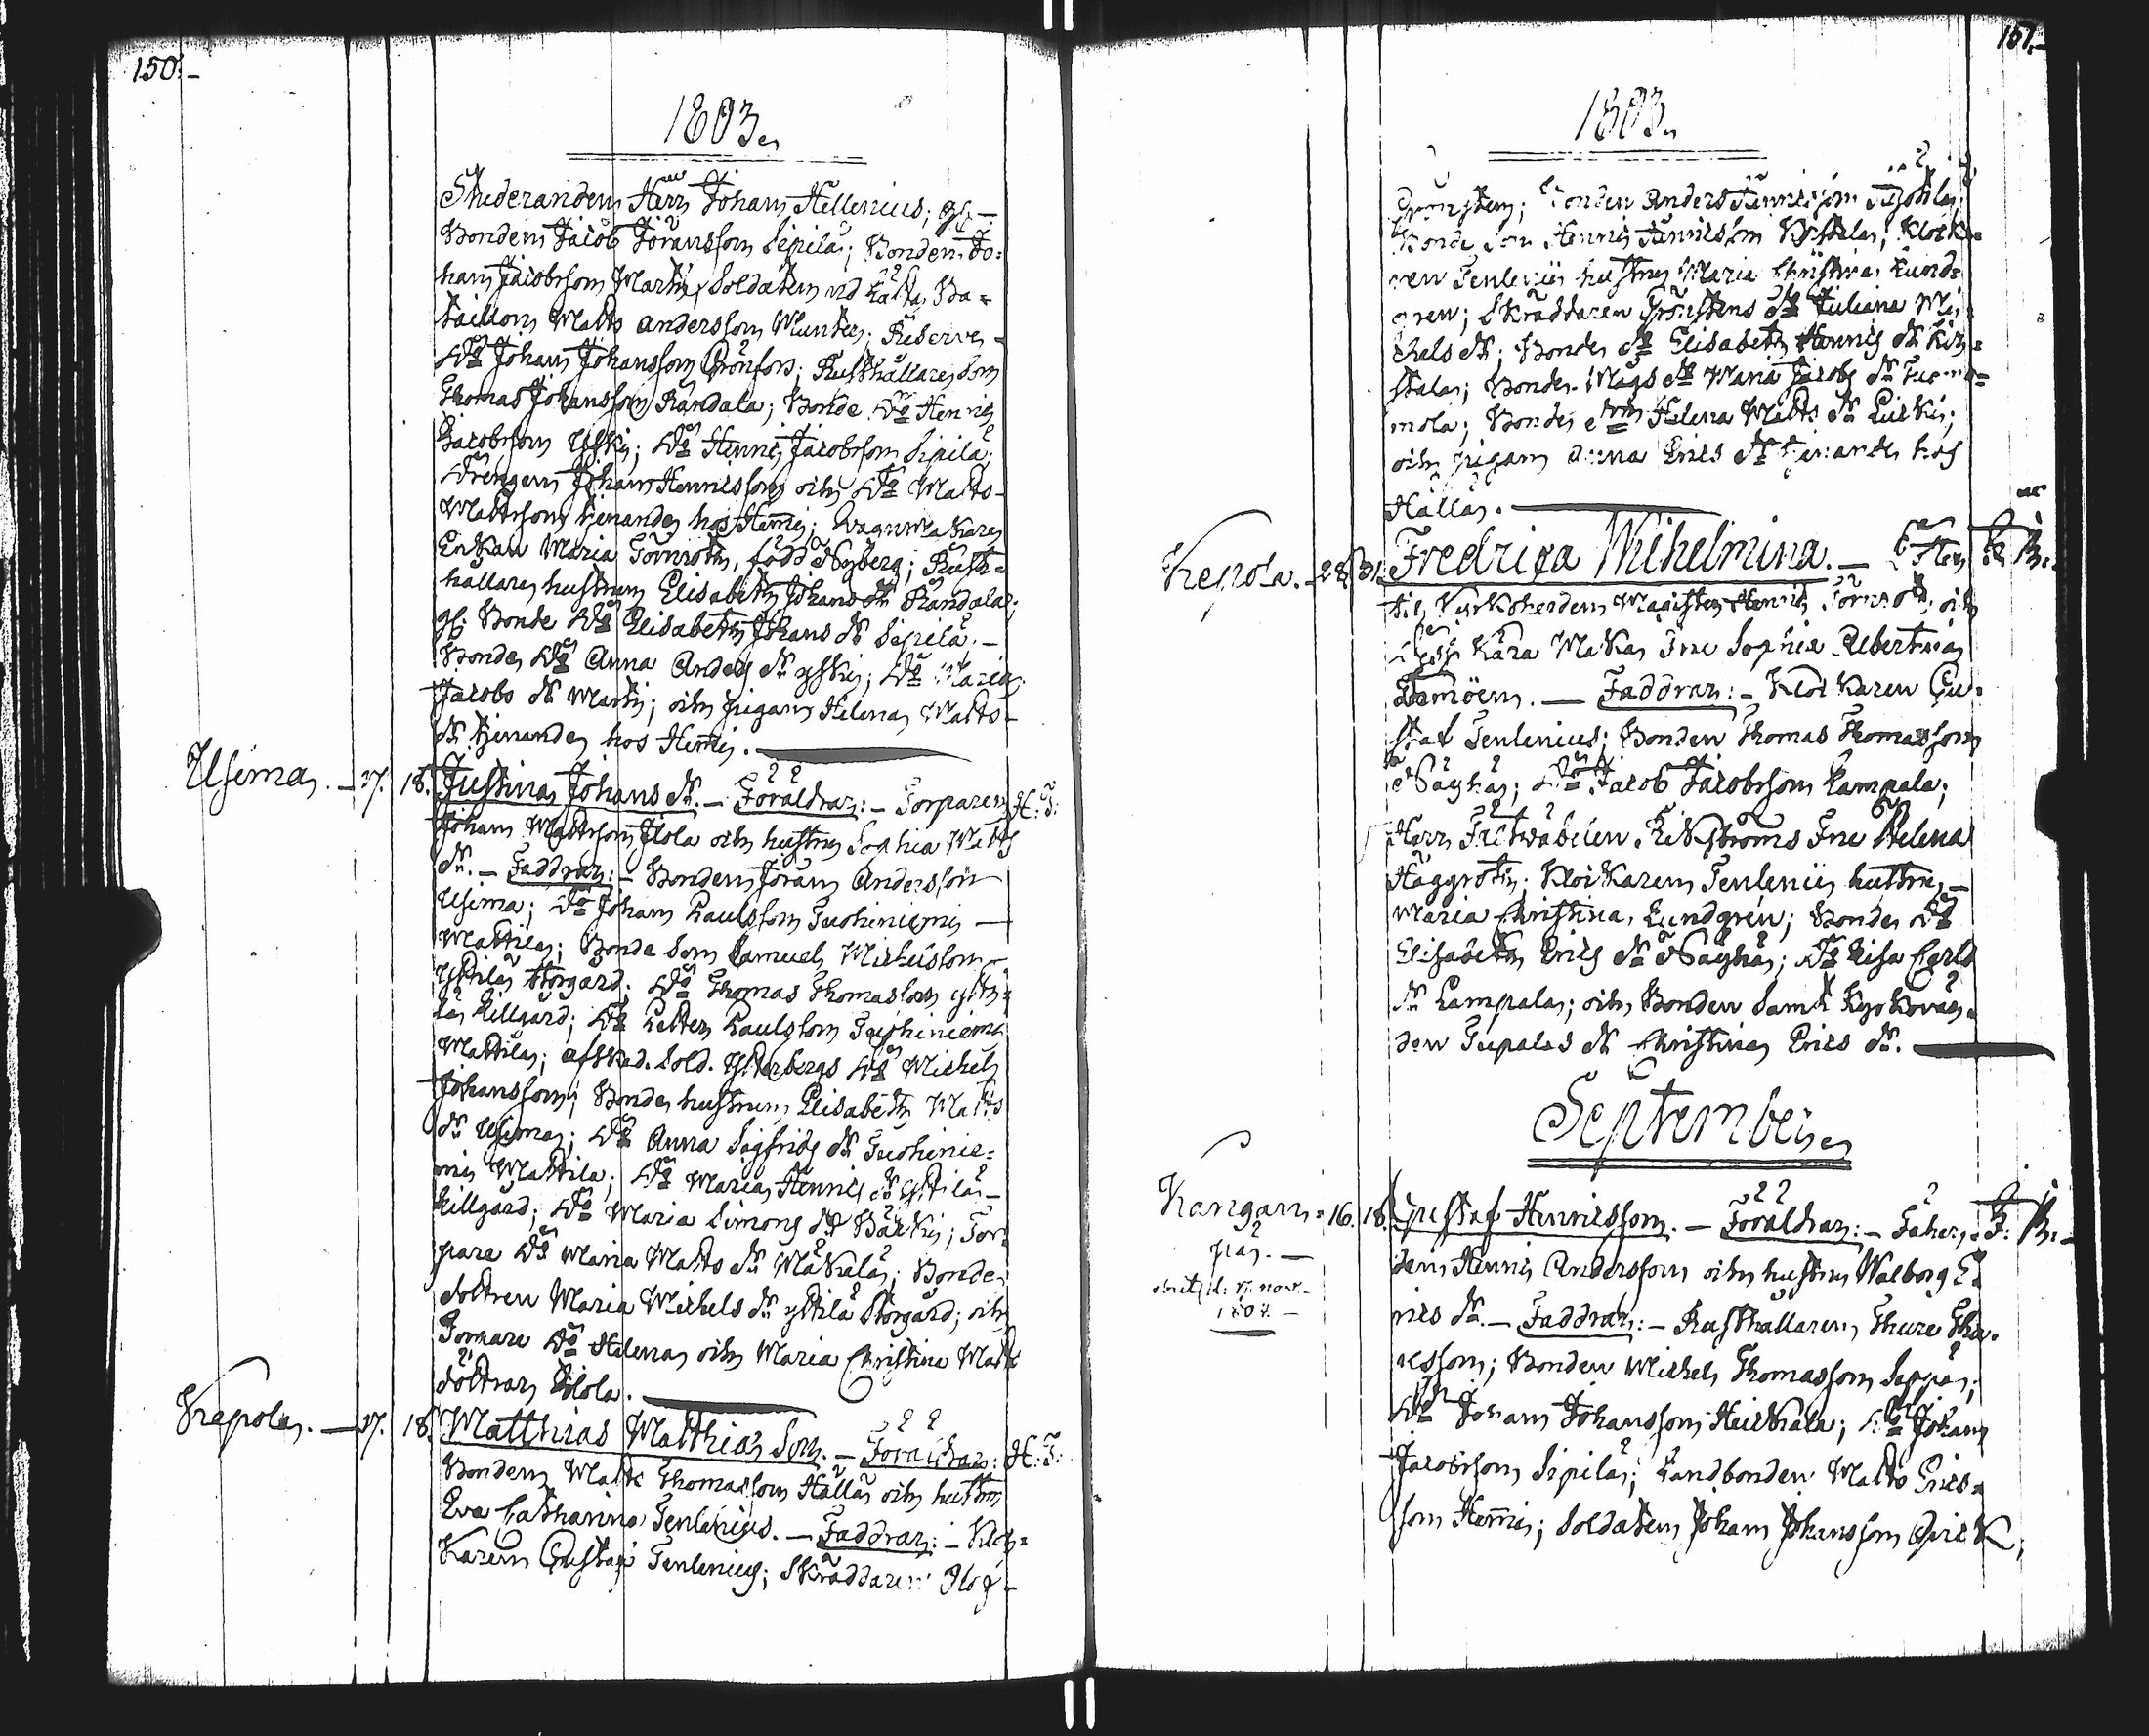 150.
1803.
Studeranden Herr Johan Hellenius; gl.
Bonden Jacob Jöransson Sipilä; Bonden Jo=
han Jacobsson Martti; Soldaten vid Ba=
taillon Matts Andersson Munter; Reserve
Do Johan Johansson Grönfors; Rusthållare Son
Thomas Johansson Randala; Bonde Do Henric
Jacobsson Yski; Do Henric Jacobsson Sipilä;
Drengen Johan Henricsson och Do Matts
Mattsson tjenande hos Hemmi; Vagnmakare
Enkan Maria Törnroth, född Nyberg; Rust=
hållare hustrun Elisabeth Johans dr Randala;
gl. Bonde Do Elisabeth Johans dr Sipilä;
Bonde Do Anna Anders dr Yski; Do Maria
Jacobs dr Martti; och pigan Helena Matts
dr tjenande hos Hemmi.
Usima. 17. 18. Justina Johans dr. – Föräldrar: – Torparen H: T:
Johan Mattsson Jlola och hustru Sophia Matts
dr. – Faddrar: – Bonden Jöran Andersson
Usima; Do Johan Paulsson Tuohiniemi
Mattila; Bonde Son Samuel Michelsson
Yttilä Storgård; Do Thomas Thomasson Ytti=
lä Lillgård; Do Petter Paulsson Tuohiniemi
Mattila; afsked. Sold. Ytterbergs Do Michel
Johansson; Bonde hustrun Elisabeth Matts
dr Usima; Do Anna Sigfrids dr Tuohinie=
mi Mattila; Do Maria Henrics dr Yttilä
Lillgård; Do Maria Simons dr Bärki; Tor=
pare Do Maria Matts dr Mäkelä; Bonde
dottren Maria Michels dr Yttilä Storgård; och
Torpare Do Helena och Maria Christina Matts
döttrar Jlola.
Kepola. 17. 18. Matthias Matthiæ Son. – Föräldrar: H: T:
Bonden Matts Thomasson Hällä och hustru
Eva Catharina Tenlenius. – Faddrar: – Kloc=
karen Gustaf Tenlenius; Skräddaren Olof
151.
1803.
Grönsten; Bonden Anders Henricsson
Bonde Son Henric Henricsson Klocka=
ren Tenlenii hustru Maria Christina Lund=
gren; Skräddaren Grönstens Do Juliana Mi=
chels dr; Bonde Do Elisabeth Henrics dr
Bonde-Mågs Do Maria Jacobs dr
mola; Bonde Helena Matts dr
och pigan Anna Erics dr tjenande hos
Hällä.
Kepola. 28. 31. Fredrica Wilhelmina. – Efter
Kyrkoherden Magister Henric Törnroth och
Dess Kära Maka Fru Sophia Albertina
Faddrar: – Klockaren Gu=
staf Tenlenius; Bonden Thomas Thomasson
Näyhä; Do Jacob Jacobsson Lampala;
Herr Fältwäbelen Ekströms Fru Helena
Häggroth; Klockaren Tenlenii hustru
Maria Christina Lundgren; Bonde Do
Elisabeth Erics dr Näyhä; Do Lisa Carls
dr Lampala; och Bonden Saml Kyrkovär=
den Tupalas dr Christina Erics dr.
September.
Kangan=
pää. 16. 18. Gustaf Henricsson. – Föräldrar: – Inhyses
obiit d: 17 nov.
180
Henric Andersson och hustru Walborg E
rics dr. – Faddrar: – Rusthållaren Thure Thu=
resson; Bonden Michel Thomasson Seppä;
Do Johan Johansson Heickala; Do Johan
Jacobsson Sipilä; Landbonden Matts Erics=
son Hemmi; Soldaten Johan Johansson Qvick;